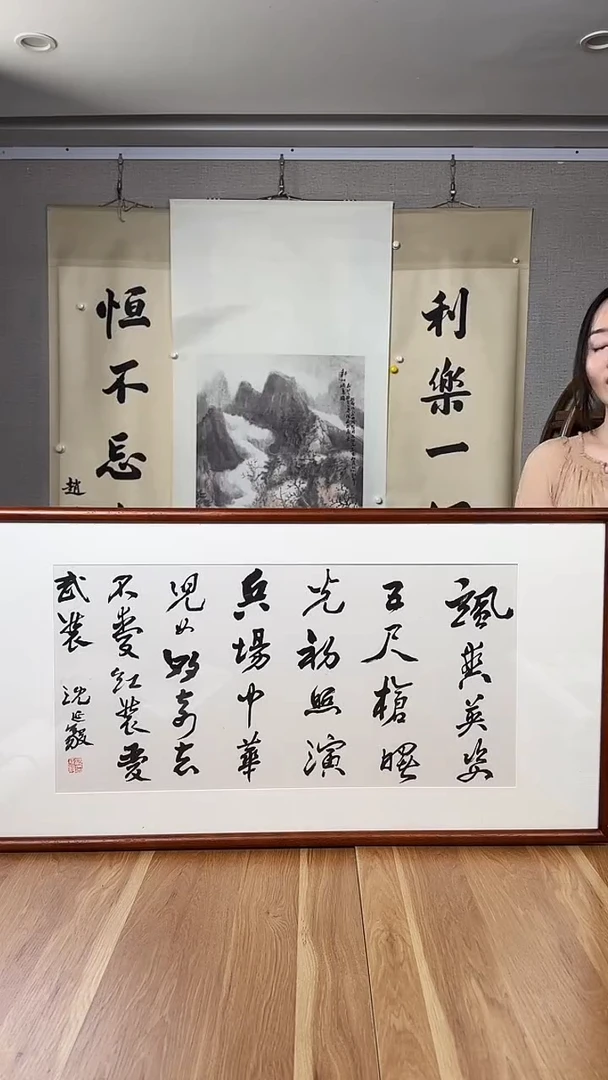 利樂一
恒不忘
趙
颯爽英姿
五尺槍曙
光初照演
兵場中華
兒女多奇志
不愛紅裝愛
武裝
沈延毅